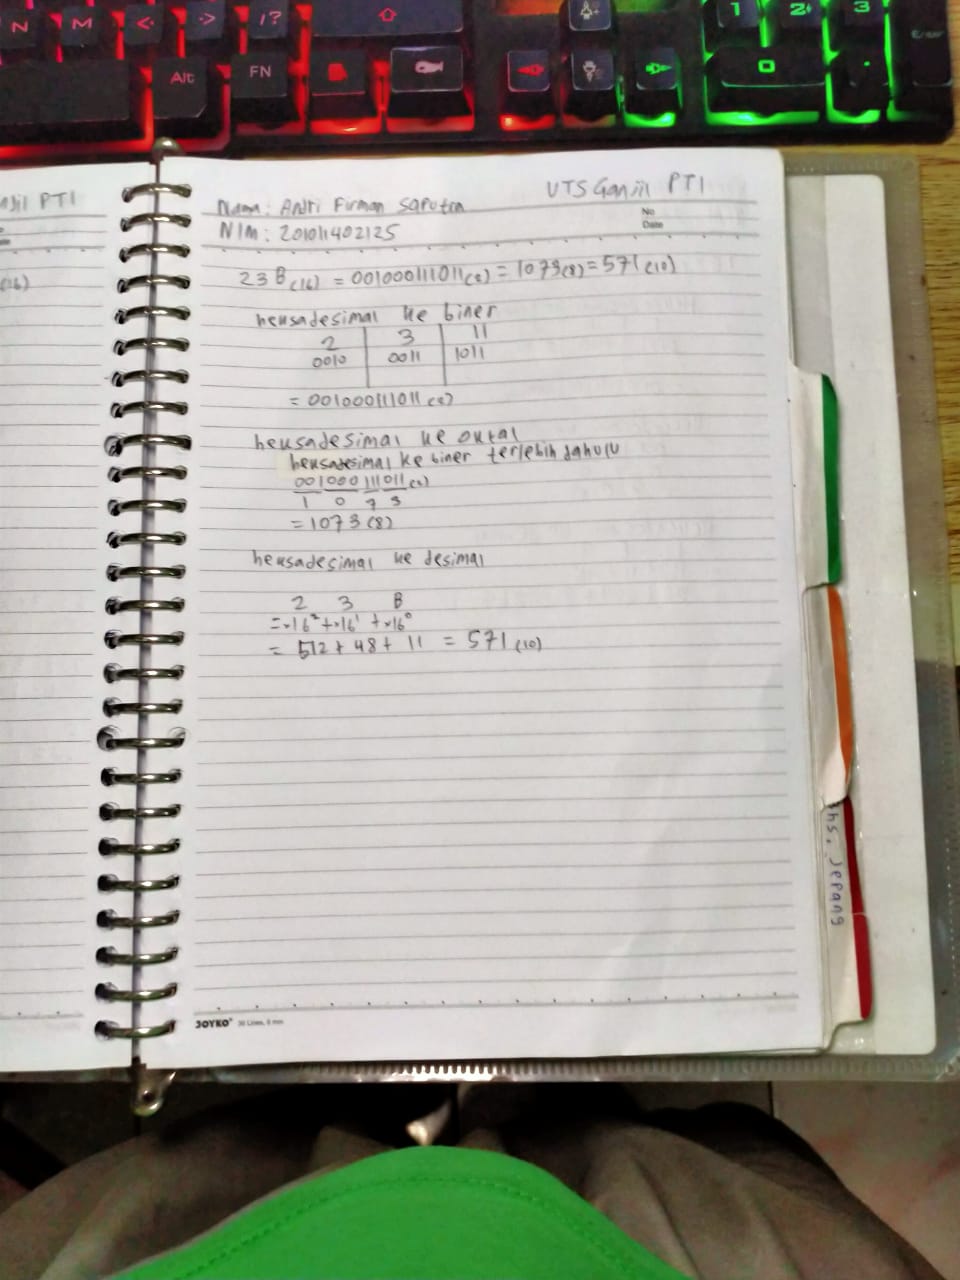 N M <· ·> !?
1 2 3
Alt FN 0 . Enter
UTS Ganjil PTI
Nama: Andri Firman Saputra
NIM: 201011402125
No
Date
PTI
(16)
23B(16) = 001000111011(2) = 1073(8) = 571(10)
heksadesimal ke biner
2 3 11
0010 0011 1011
= 001000111011(2)
heksadesimal ke oktal
heksadesimal ke biner terlebih dahulu
001000111011(2)
1 0 7 3
= 1073(8)
heksadesimal ke desimal
2 3 B
= ×16² + ×16¹ + ×16⁰
= 512 + 48 + 11 = 571(10)
hs. Jepang
JOYKO 30 Lines, 8 mm